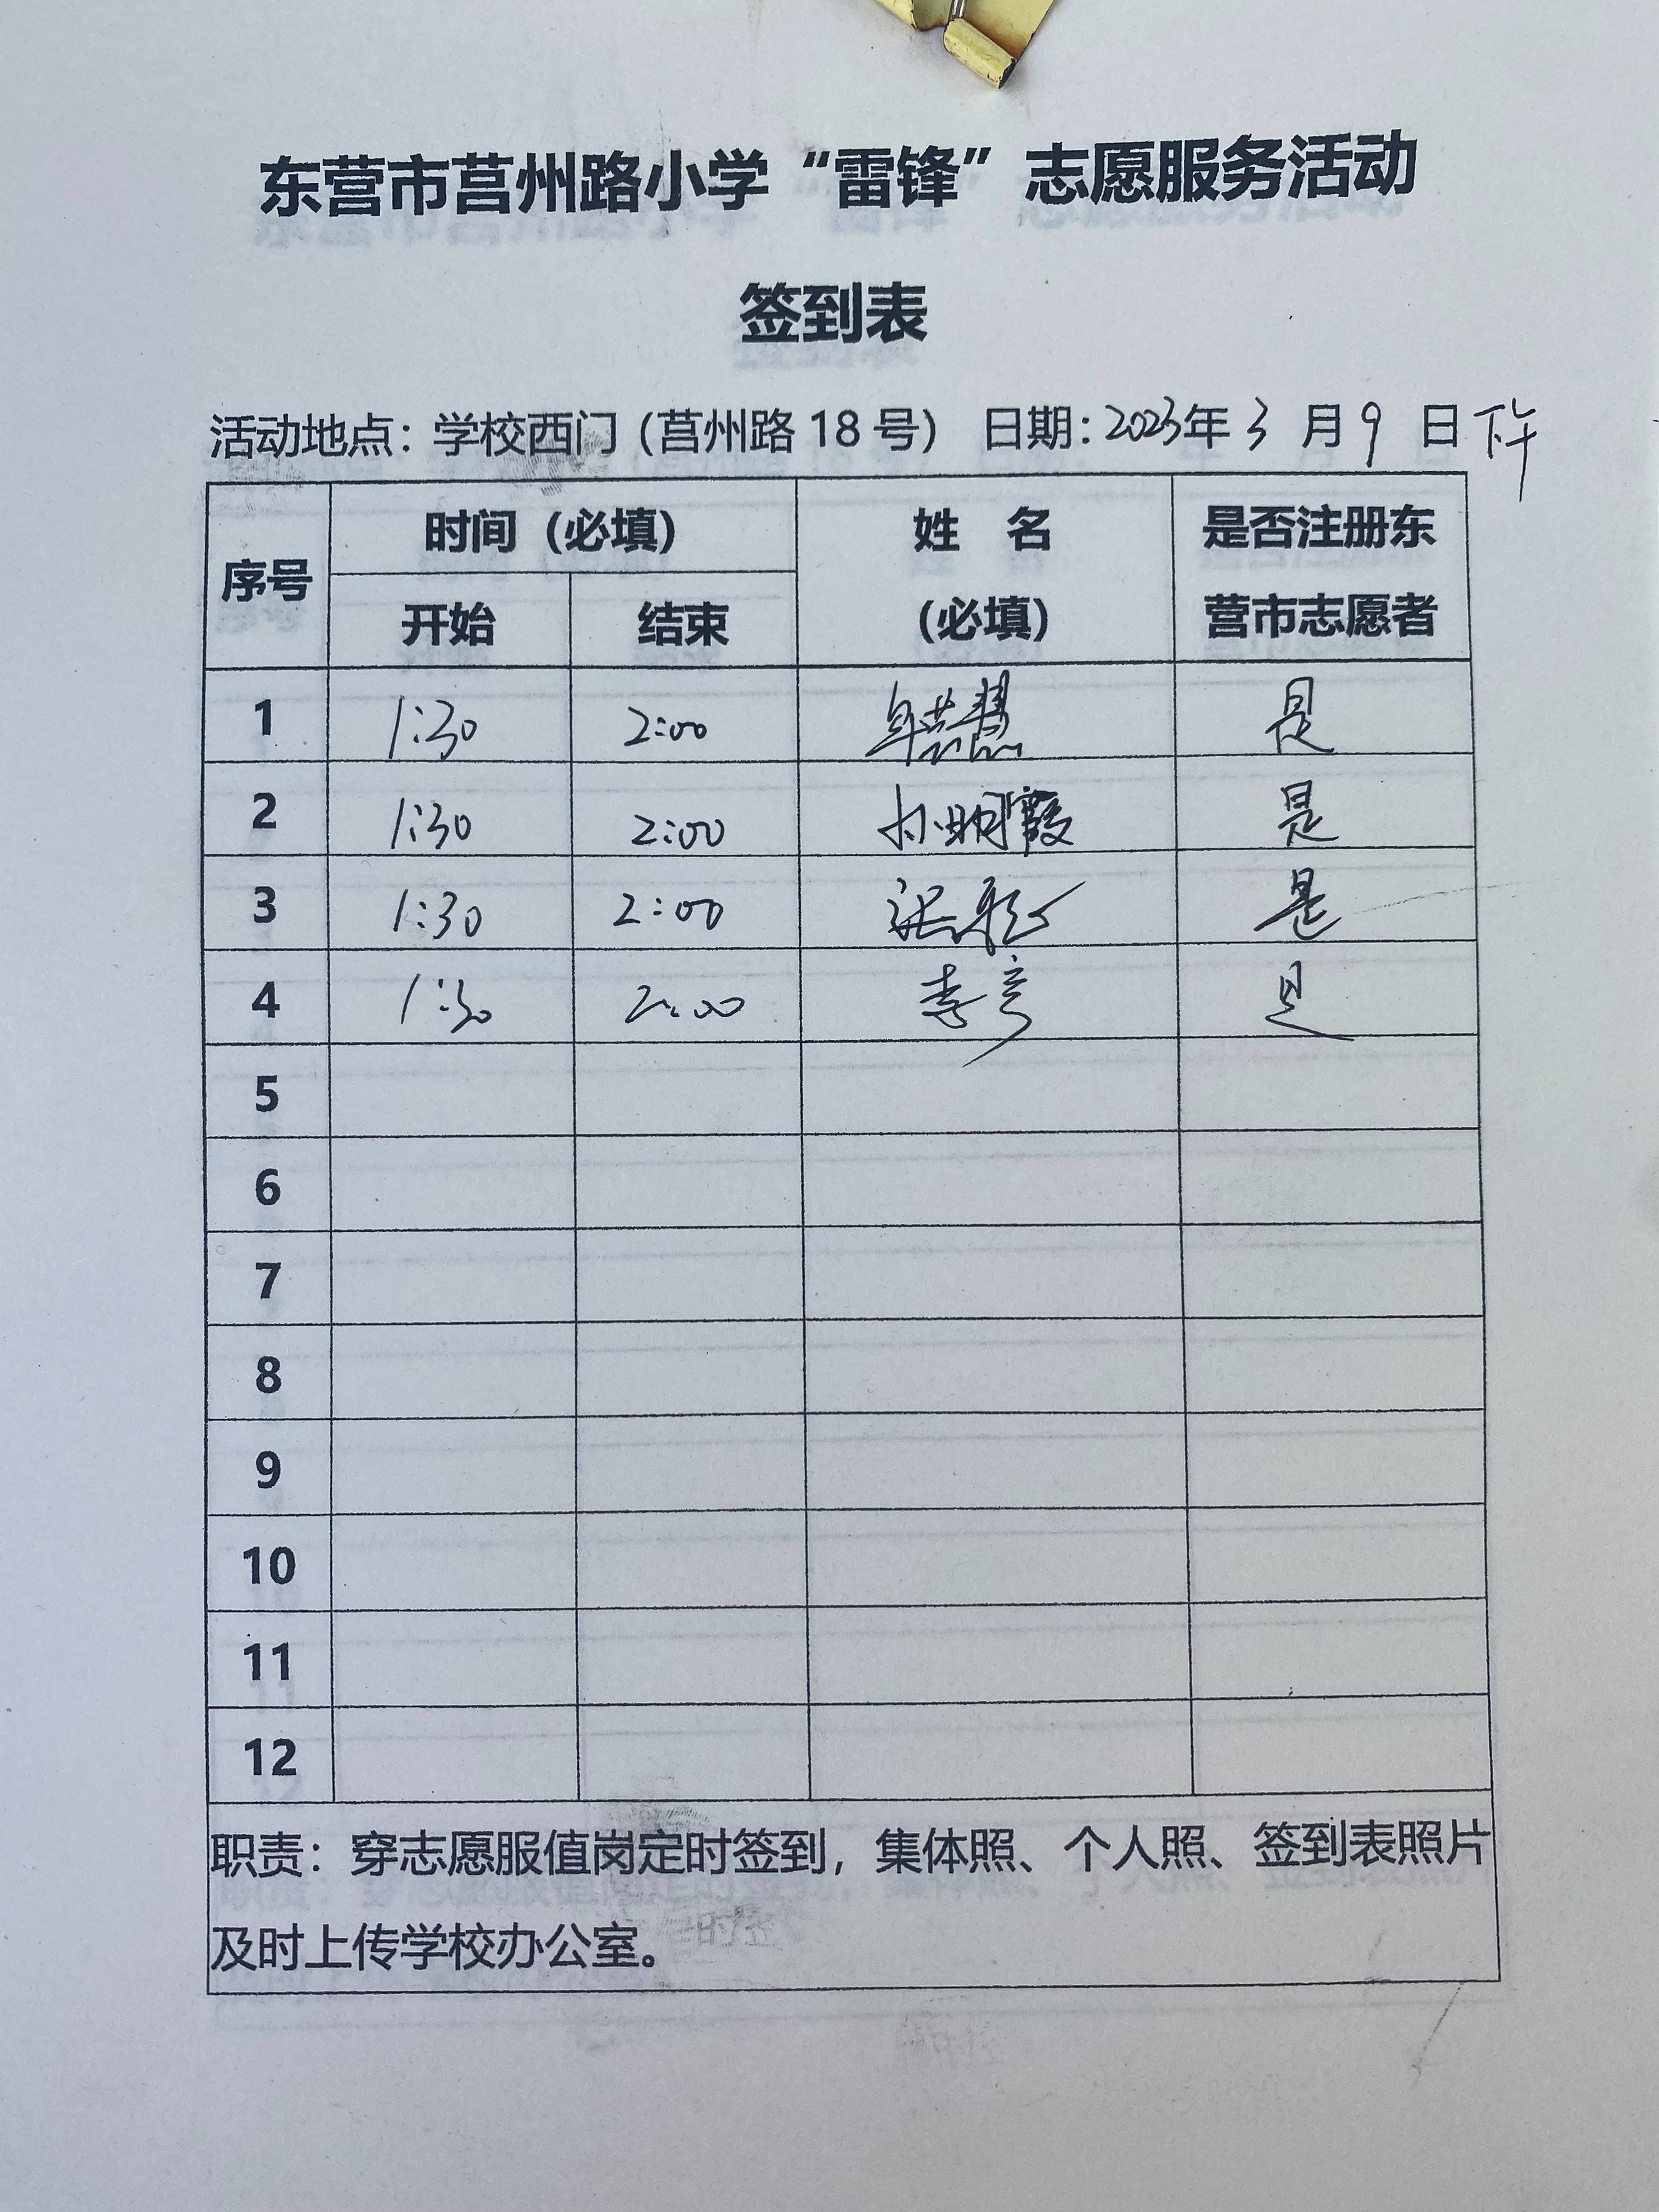 东营市莒州路小学“雷锋”志愿服务活动
签到表
活动地点：学校西门（莒州路18号） 日期：2023年3月9日下午
序号 时间（必填） 姓 名（必填） 是否注册东营市志愿者
开始 结束
1 1:30 2:00 是
2 1:30 2:00 孙明霞 是
3 1:30 2:00 是
4 1:30 2:00 李 是
5
6
7
8
9
10
11
12
职责：穿志愿服值岗定时签到，集体照、个人照、签到表照片
及时上传学校办公室。